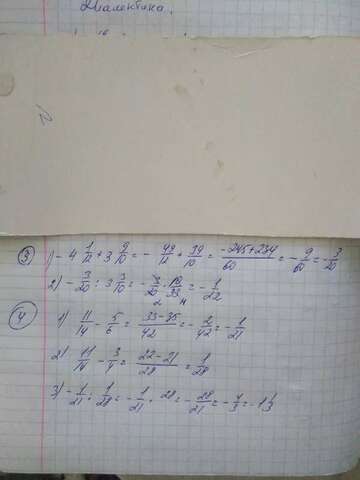 Диалектика.
③ 1) - 4 1/12 + 3 9/10 = - 49/12 + 39/10 = (-245+234)/60 = - 9/60 = - 3/20
2) - 3/20 : 3 3/10 = - 3/20 · 10/33 = - 1/22
④ 1) 11/14 - 5/6 = (33-35)/42 = - 2/42 = - 1/21
2) 11/14 - 3/4 = (22-21)/28 = 1/28
3) - 1/21 : 1/28 = - 1/21 · 28 = - 28/21 = - 4/3 = - 1 1/3